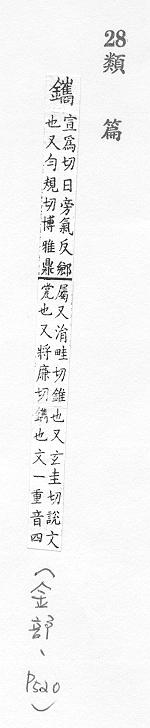 28 類篇
鑴
宣為切日旁氣反鄉
也又勻規切博雅鼎
屬又涓畦切錐也又玄圭切說文
瓽也又將廉切鐫也文一重音四
(金部、P520)